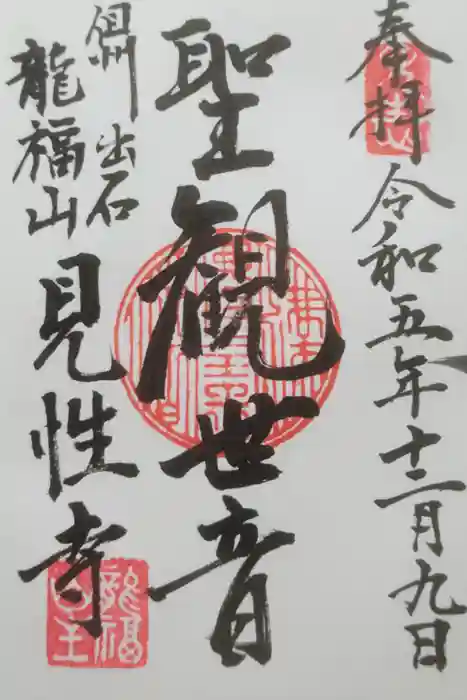 奉拝
令和五年十二月九日
聖観世音
但州出石
龍福山
見性寺